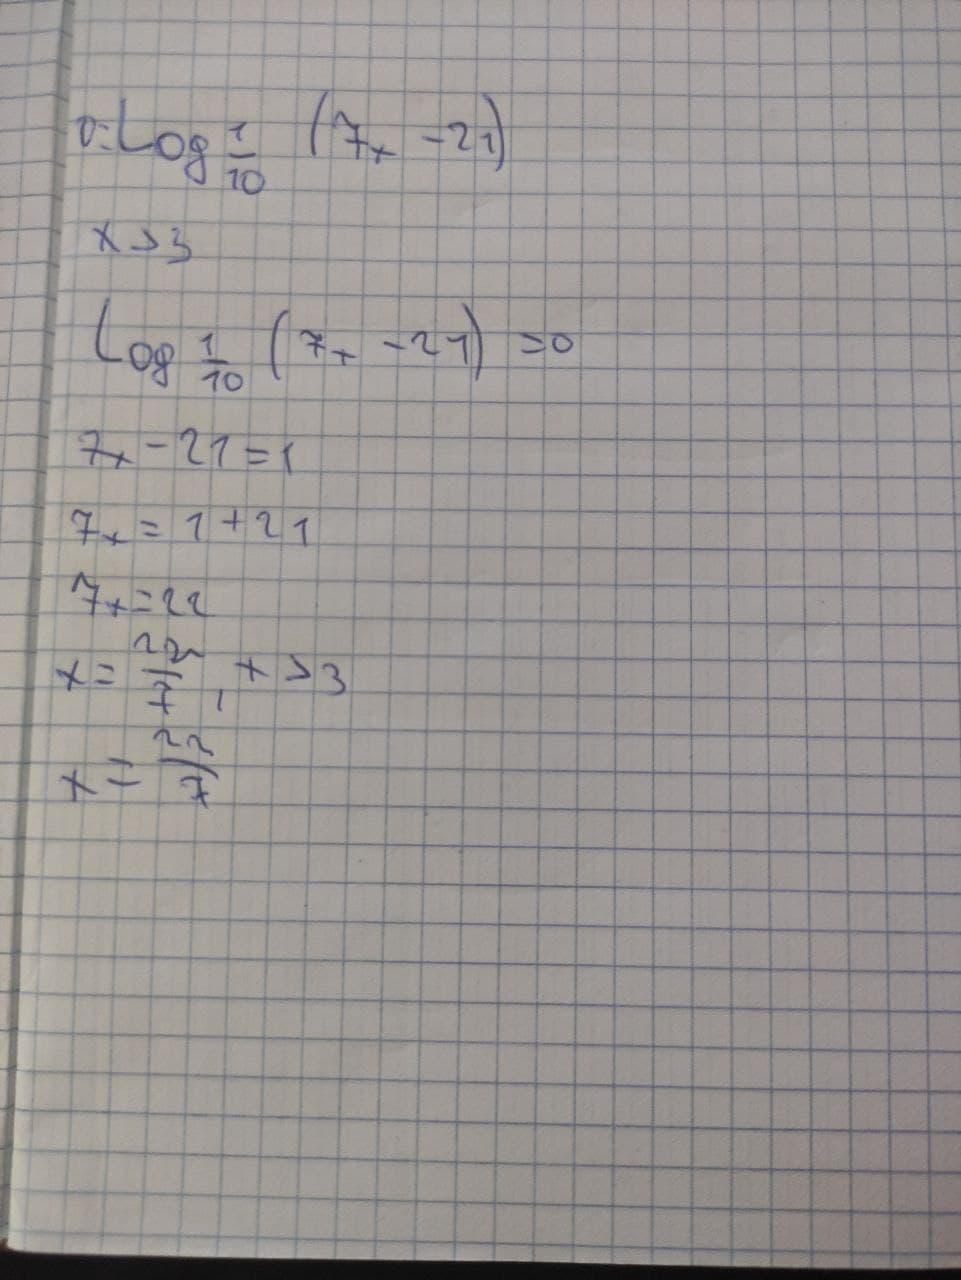 0=Log 1/10 (7x -21)
x>3
Log 1/10 (7x -21) =0
7x-21=1
7x=1+21
7x=22
x=22/7, x>3
x=22/7